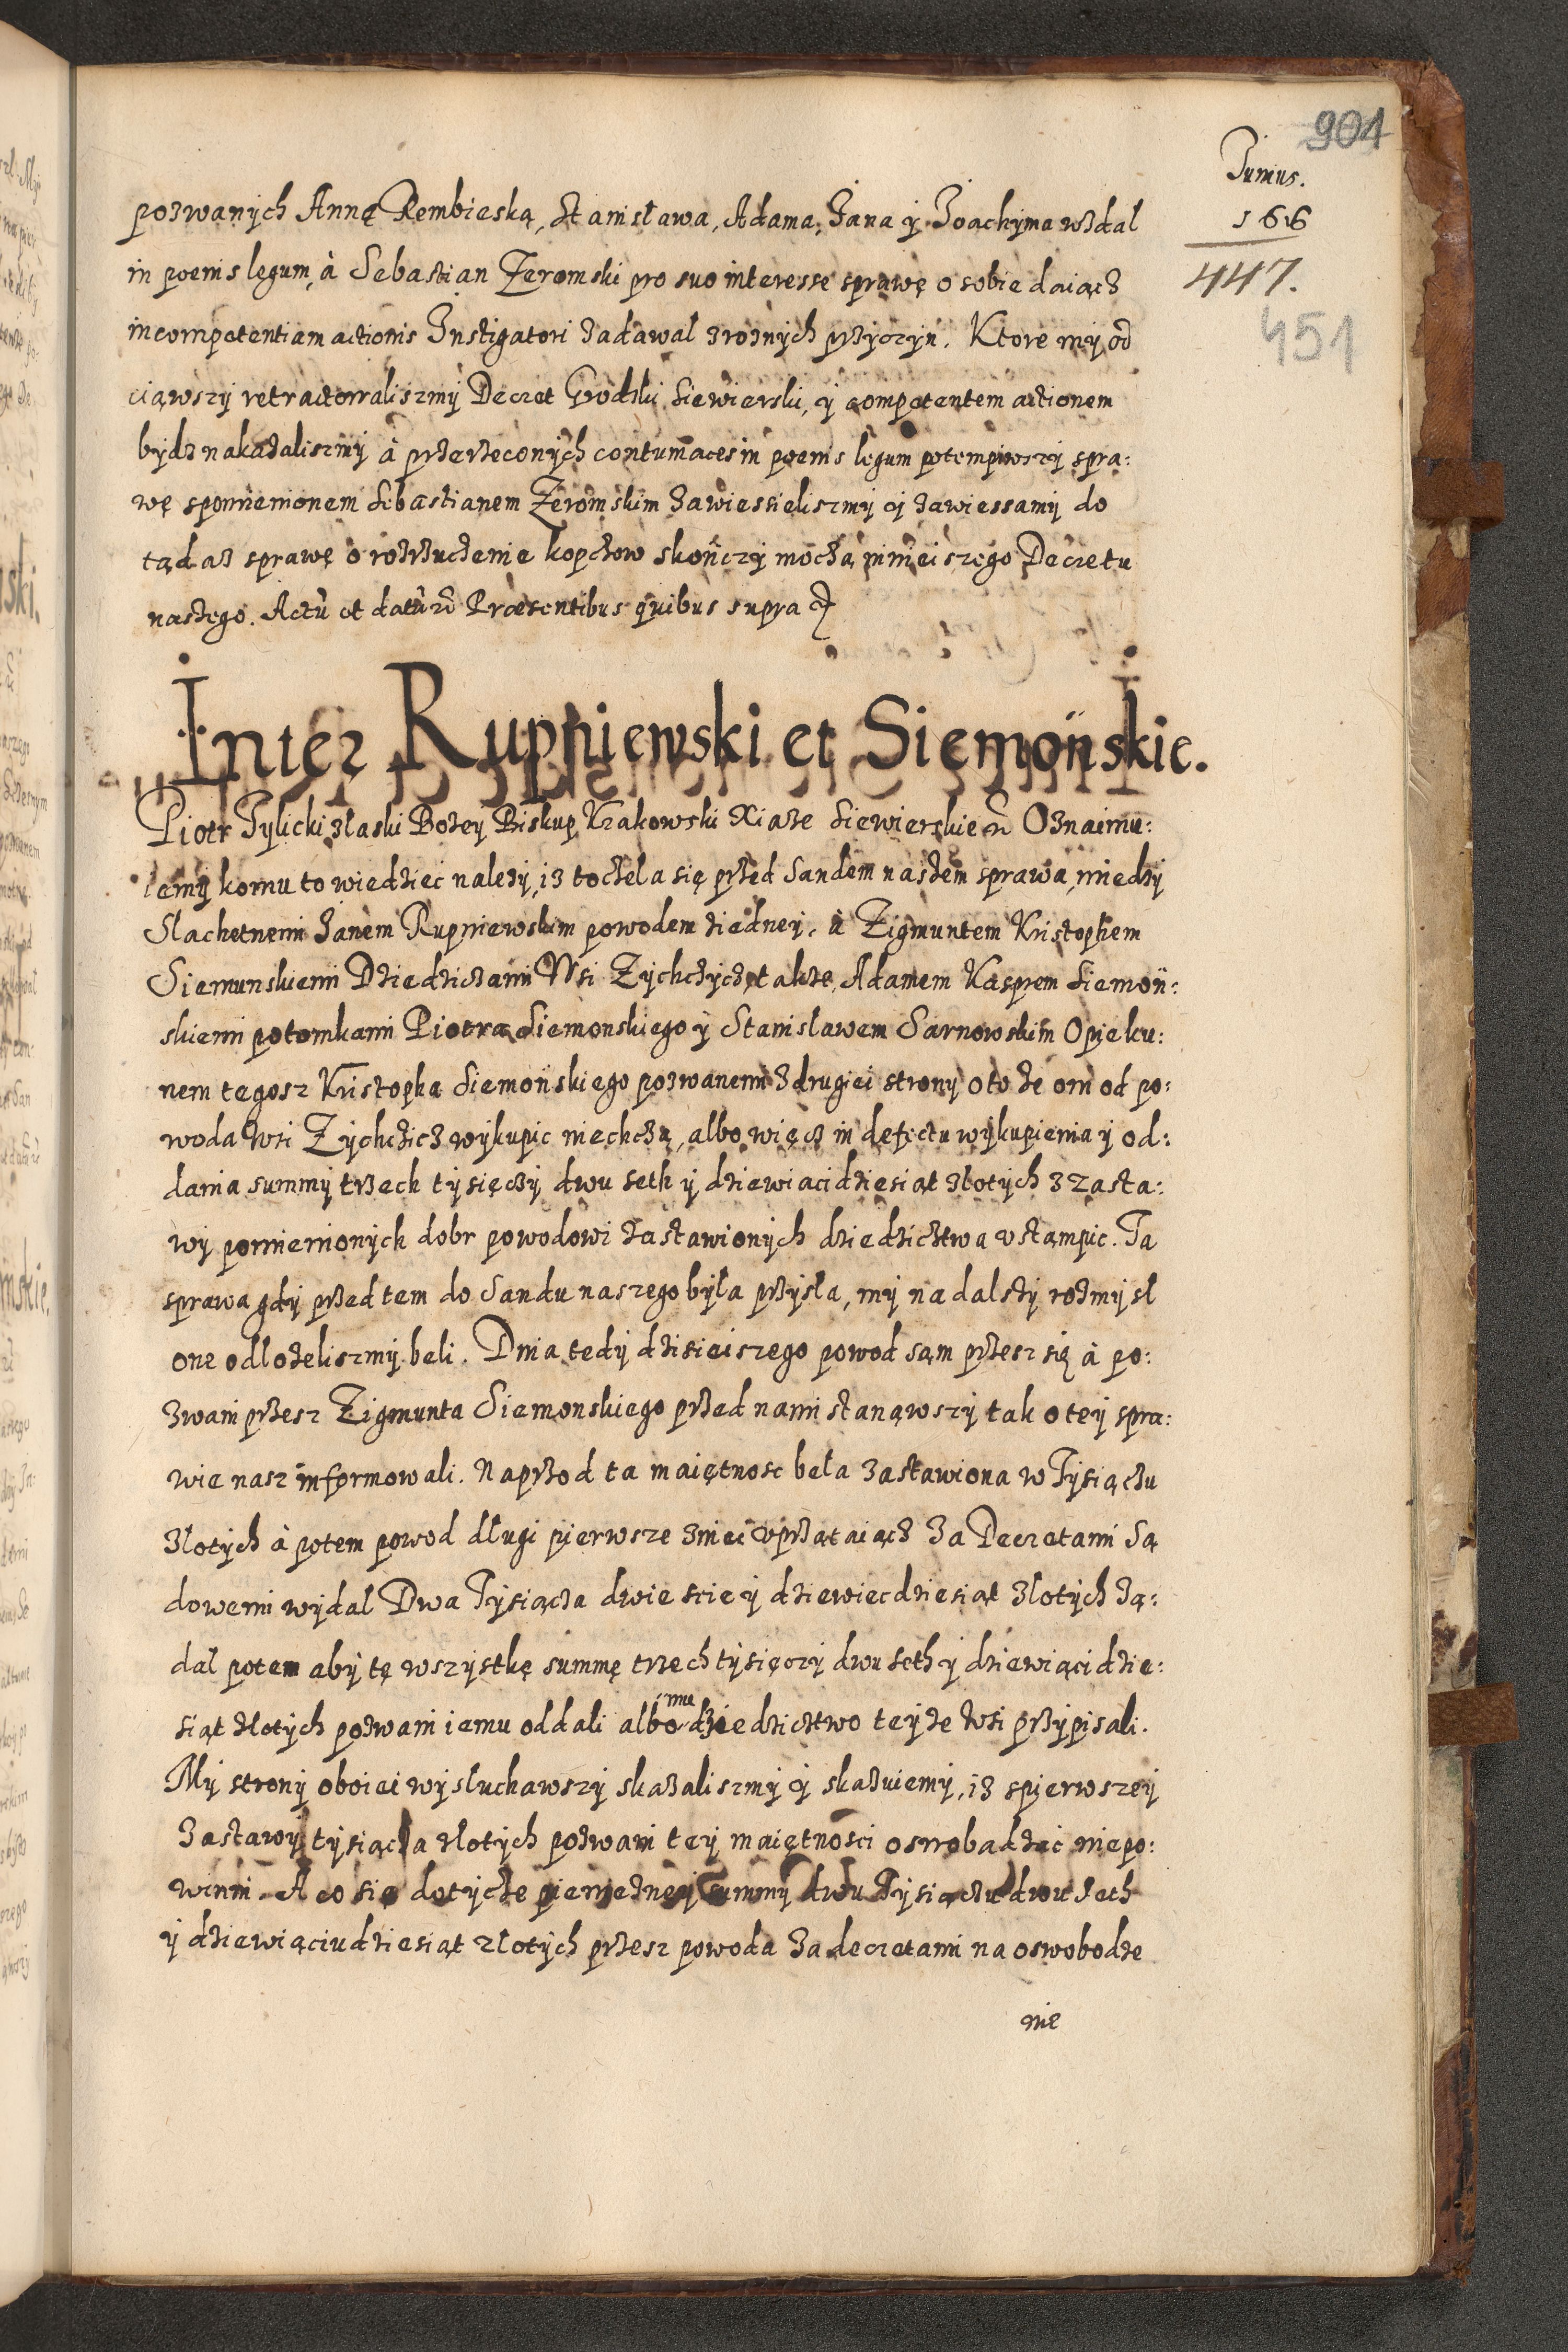 901
Junius.
166
447.
451
pozwanych Annę Rembieską, Stanisława, Adama, Jana ÿ Joachyma wzdal
in poenis legum, à Sebastian Zeromski pro suo interesse sprawę o sobie daiącz
incompetentiam actionis Instigatori zadawal z roznych przyczyn. Ktore my od
ciąwszy retractowaliszmy Decret Grodzki Siewierski, ÿ competentem actionem
bydz nakazaliszmy à przerzeconych contumaces in poenis legum potempiwszy spra:
wę spomienionem Sebastianem Zeromskim zawiessieliszmy ÿ zawiessamy do
tąd asz sprawę o rozrzuczenie kopczow skończy moczą ninieiszego Decretu
naszego. Actū et datum Praesentibus quibus supra
Inter Rupniewski et Siemońskie.
Piotr Tylicki z laski Bozey Biskup Krakowski Xiąze Siewierskie Oznaimu:
iemy komu to wiedziec nalezy, iz toczela się przed Sandem naszem sprawa, miedzy
Slachetnemi Janem Rupniewskim powodem ziedney, à Zigmuntem Kristophem
Siemunskiemi Dziedziczami Wsi Zychczycz, takze, Adamem Kasprem Siemoń:
skiemi potomkami Piotra Siemonskiego ÿ Stanislawem Sarnowskim Opieku:
nem tegosz Kristopha Siemońskiego pozwanemi z drugiei strony o to ze oni od po:
woda Wsi Zychczicz wykupic niechczą, albo więcz in defectu wykupienia ÿ od:
dania summy trzech tysięczy dwu seth ÿ dziewiacidziesiąt złotych z zasta:
wy pomienionych dobr powodowi zastawionych dziedzicztwa ustąmpic. Ta
sprawa gdy przed tem do Sandu naszego była przysła, my na dalszy rozmysł
one odlozeliszmy beli. Dnia tedy dzisieiszego powod sąm przesz się à po:
zwani przesz Zigmunta Siemonskiego przed nami stanąwszy tak o tey spra:
wie nasz informowali. Naprzod ta maiętnosc beła zastawiona w Tysiączu
złotych à potem powod długi pierwsze z niei uprzątaiącz za Decretami Są
dowemi wydal Dwa Tysiącza dwie scie ÿ dziewiecdziesiąt złotych Zą:
dal potem aby tę wszystkę summę trzech tysięczy dwu seth ÿ dziewiącidzie:
siąt złotych pozwani iemu oddali albo mu dziedzicztwo teyze Wsi przypisali.
My strony oboiei wysłuchawszy skazaliszmy ÿ skazuiemy, iz spierwszey
zastawy tysiącza złotych pozwani tey maiętnosci oswobadzac niepo:
winni. A co się dotycze pienieznej summy dwu Tysiączu dwu seth
ÿ dziewiąciudziesiąt złotych przesz powoda za decretami na oswobodze
nie